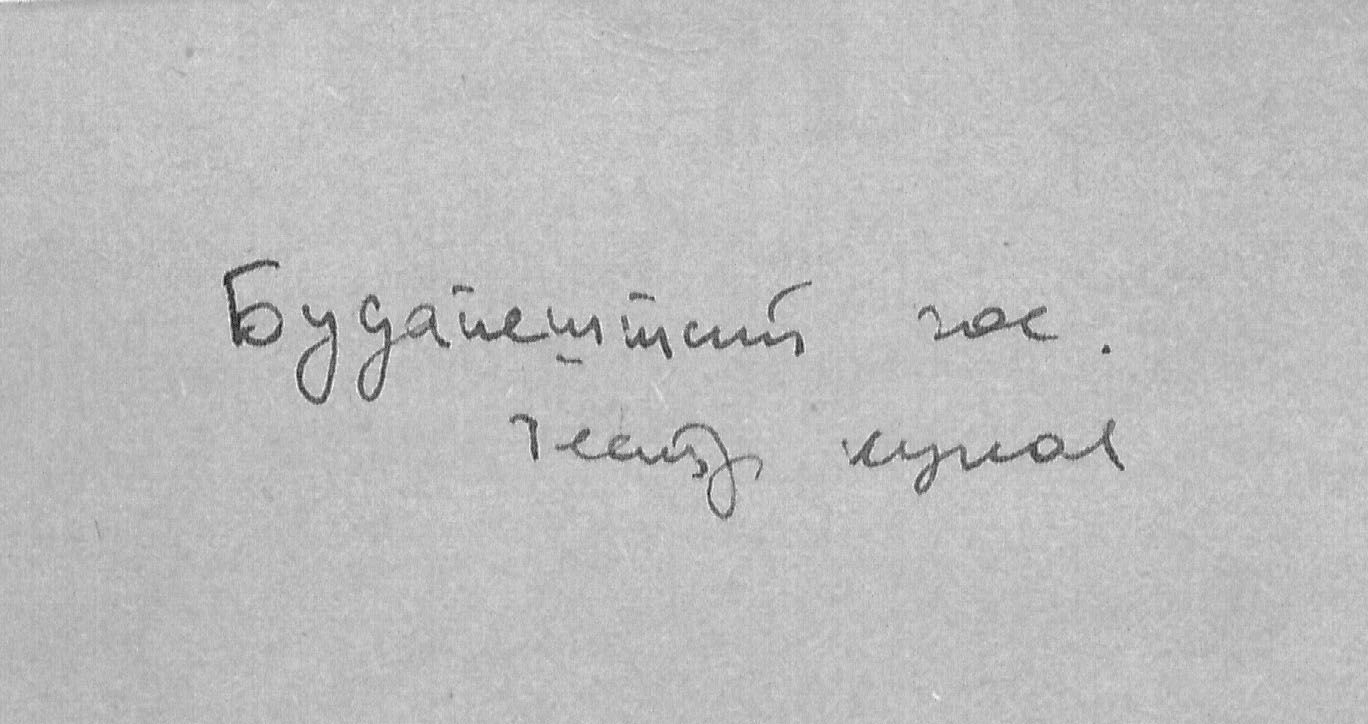 Будапештский гос.
театр кукол